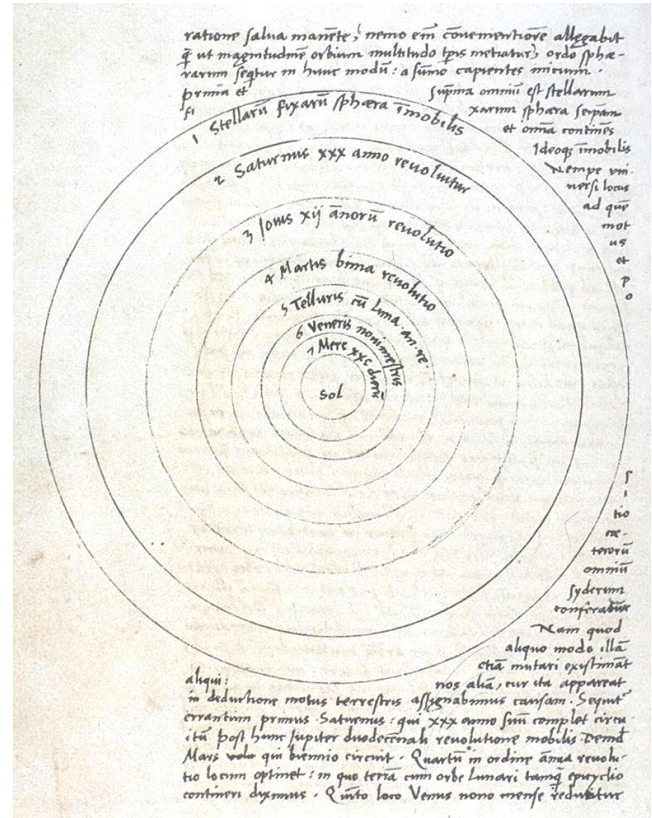 ratione salua manēte, nemo em̄ conuenientiorē allegabit
q̄ ut magnitudinē orbium multitudo tp̄is metiatur, ordo sphæ-
rarum seq̄tur in hunc modū: a sum̄o capientes inicium.
prima et suprema omniū est stellarum
fi xarum sphæra seipsam
et omnia continēs
Ideoq; īmobilis
Nempe vni-
uersi locus
ad quē
mot
us
et
p
o
1 Stellarū fixarū sphæra īmobilis
2 Saturnus xxx anno reuoluitur
3 Iouis xij annorū reuolutio
4 Martis bima reuolutio
5 Telluris cū luna an. re.
6 Veneris nonimestris
7 Merc xxc dierū
Sol
S
i
tio
cæ-
terorū
omniū
syderum
conferatur
Nam quod
aliquo modo illā
etiā mutari existimāt
aliqui: nos aliā, cur ita appareat
in deductione motus terrestris assignabimus causam. Sequitˀ
errantium primus Saturnus: qui xxx anno suū complet circu-
itū post hunc Jupiter duodecēnali reuolutione mobilis Deinde
Mars qui biennio circuit. Quartū in ordine ānua reuolu-
tio locum optinet: in quo terrā cum orbe Lunari tamq̄ epicyclo
contineri diximus. Quīto loco Venus nono mense reducitur